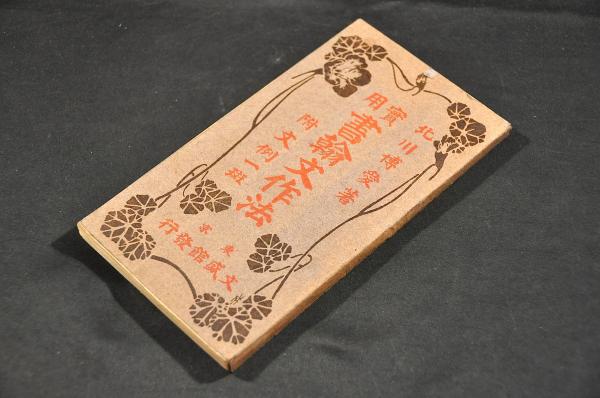 北川博愛著
實用
書翰文作法
附文例一班
東京
文盛館發行